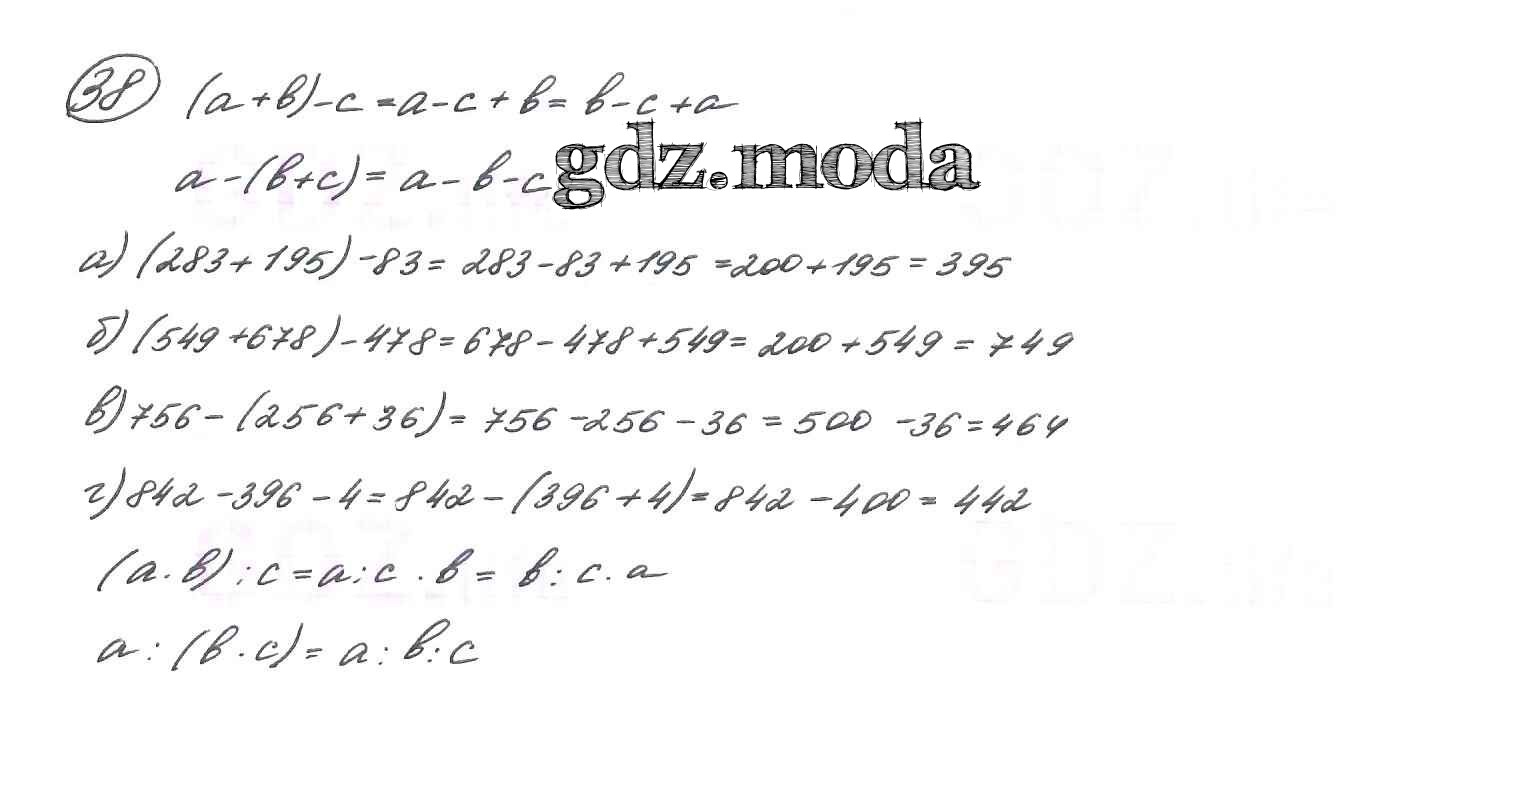 38 (a+b)-c=a-c+b=b-c+a
a-(b+c)=a-b-c
gdz.moda
а) (283+195)-83=283-83+195=200+195=395
б) (549+678)-478=678-478+549=200+549=749
в) 756-(256+36)=756-256-36=500-36=464
г) 842-396-4=842-(396+4)=842-400=442
(a·b):c=a:c·b=b:c·a
a:(b·c)=a:b:c